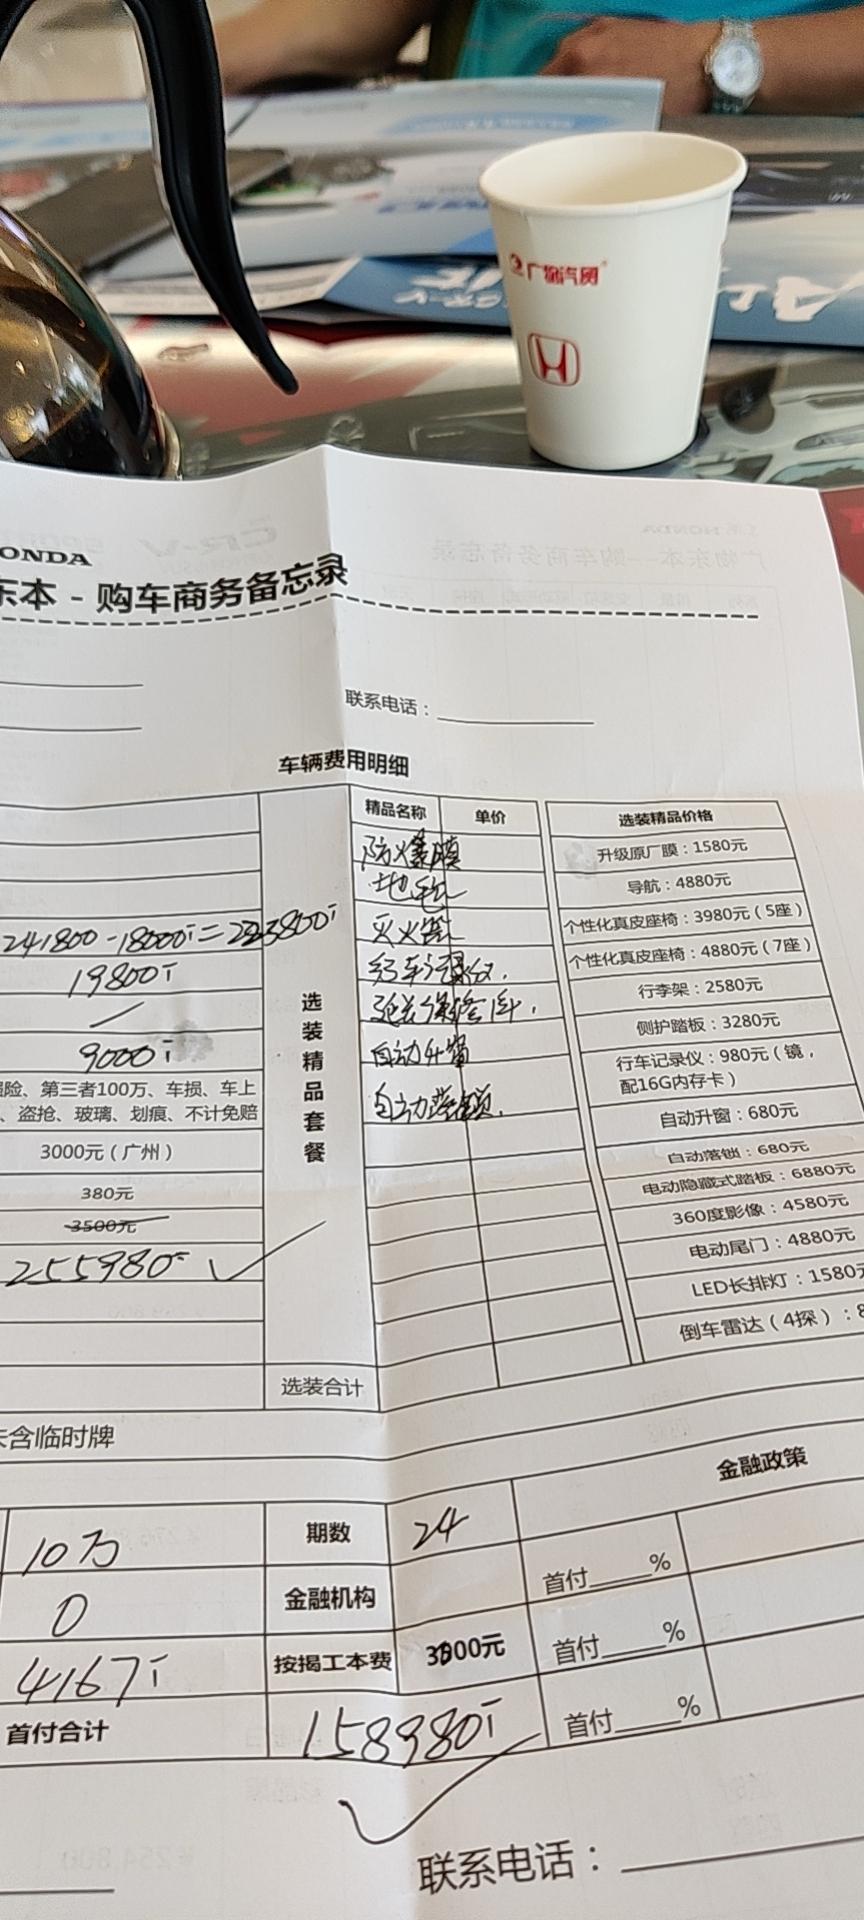 广物汽贸
ONDA
东本 - 购车商务备忘录
联系电话：
车辆费用明细
精品名称 单价 选装精品价格
防火爆膜 升级原厂膜：1580元
地毯 导航：4880元
241800-18000元=223800元 灭火器 个性化真皮座椅：3980元（5座）
19800元 行车记录仪. 个性化真皮座椅：4880元（7座）
延长保修1年. 行李架：2580元
9000元 自动升窗 侧护踏板：3280元
险、第三者100万、车损、车上 自动落锁. 行车记录仪：980元（镜，
、盗抢、玻璃、划痕、不计免赔 配16G内存卡）
选装精品套餐
3000元（广州） 自动升窗：680元
380元 自动落锁：680元
3500元 电动隐藏式踏板：6880元
255980元 360度影像：4580元
电动尾门：4880元
LED长排灯：1580元
倒车雷达（4探）：8
选装合计
未含临时牌
金融政策
10万 期数 24 首付 %
0 金融机构 首付 %
4167元 按揭工本费 3000元 首付 %
首付合计 158980元
联系电话：